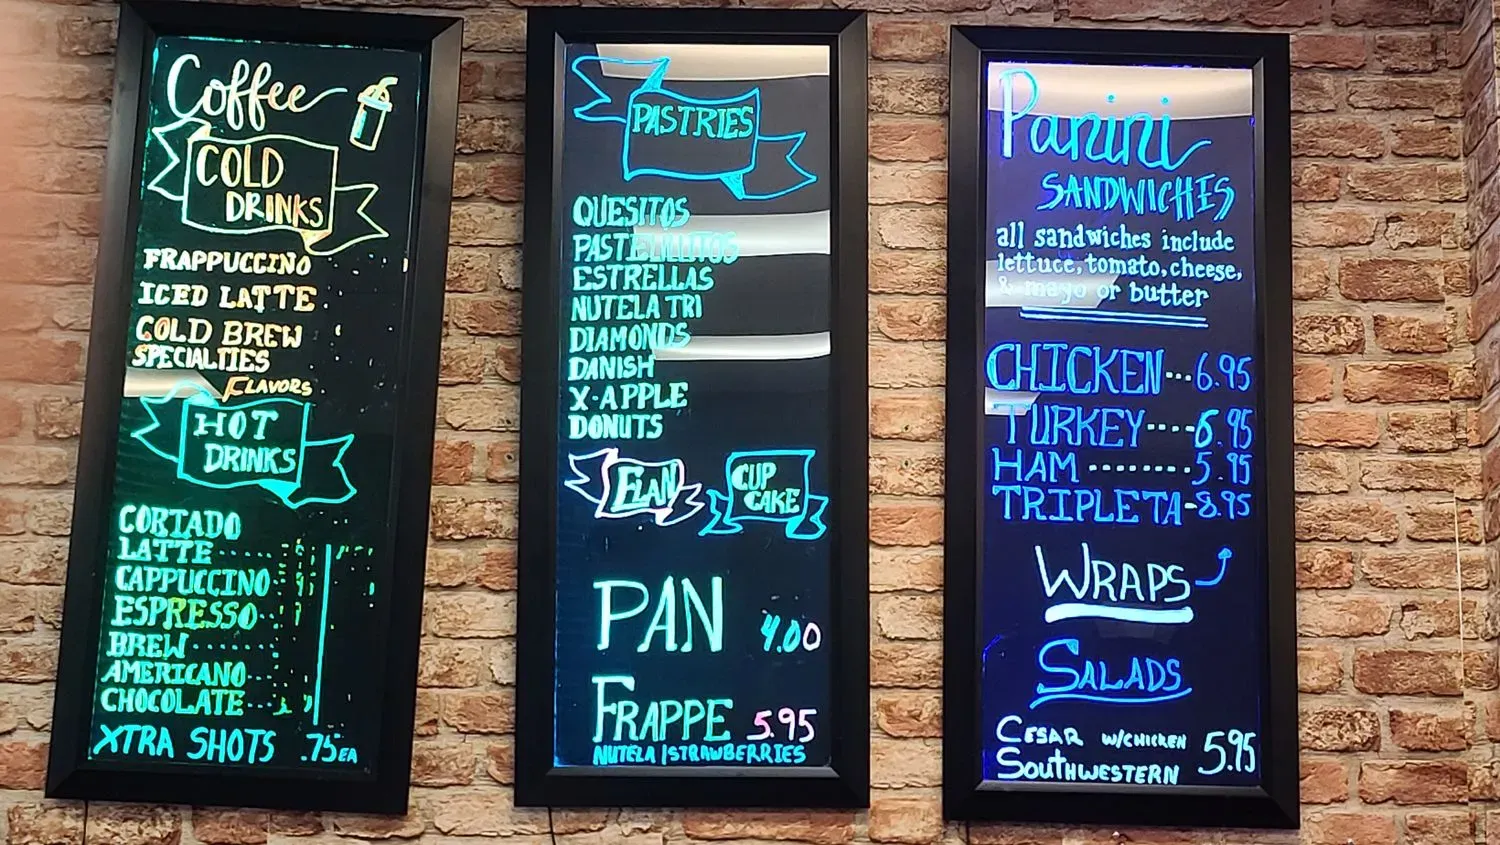 Coffee
COLD
DRINKS
FRAPPUCCINO
ICED LATTE
COLD BREW
SPECIALTIES
FLAVORS
HOT
DRINKS
CORTADO
LATTE
CAPPUCCINO
ESPRESSO
BREW
AMERICANO
CHOCOLATE
XTRA SHOTS .75EA
PASTRIES
QUESITOS
PASTELILLITOS
ESTRELLAS
NUTELA TRI
DIAMONDS
DANISH
X-APPLE
DONUTS
FLAN
CUP
CAKE
PAN 4.00
FRAPPE 5.95
NUTELA/STRAWBERRIES
Panini
SANDWICHIS
all sandwiches include
lettuce, tomato, cheese,
& mayo or butter
CHICKEN...6.95
TURKEY....6.95
HAM ........5.95
TRIPLETA-8.95
WRAPS
SALADS
CESAR W/CHICKEN 5.95
SOUTHWESTERN